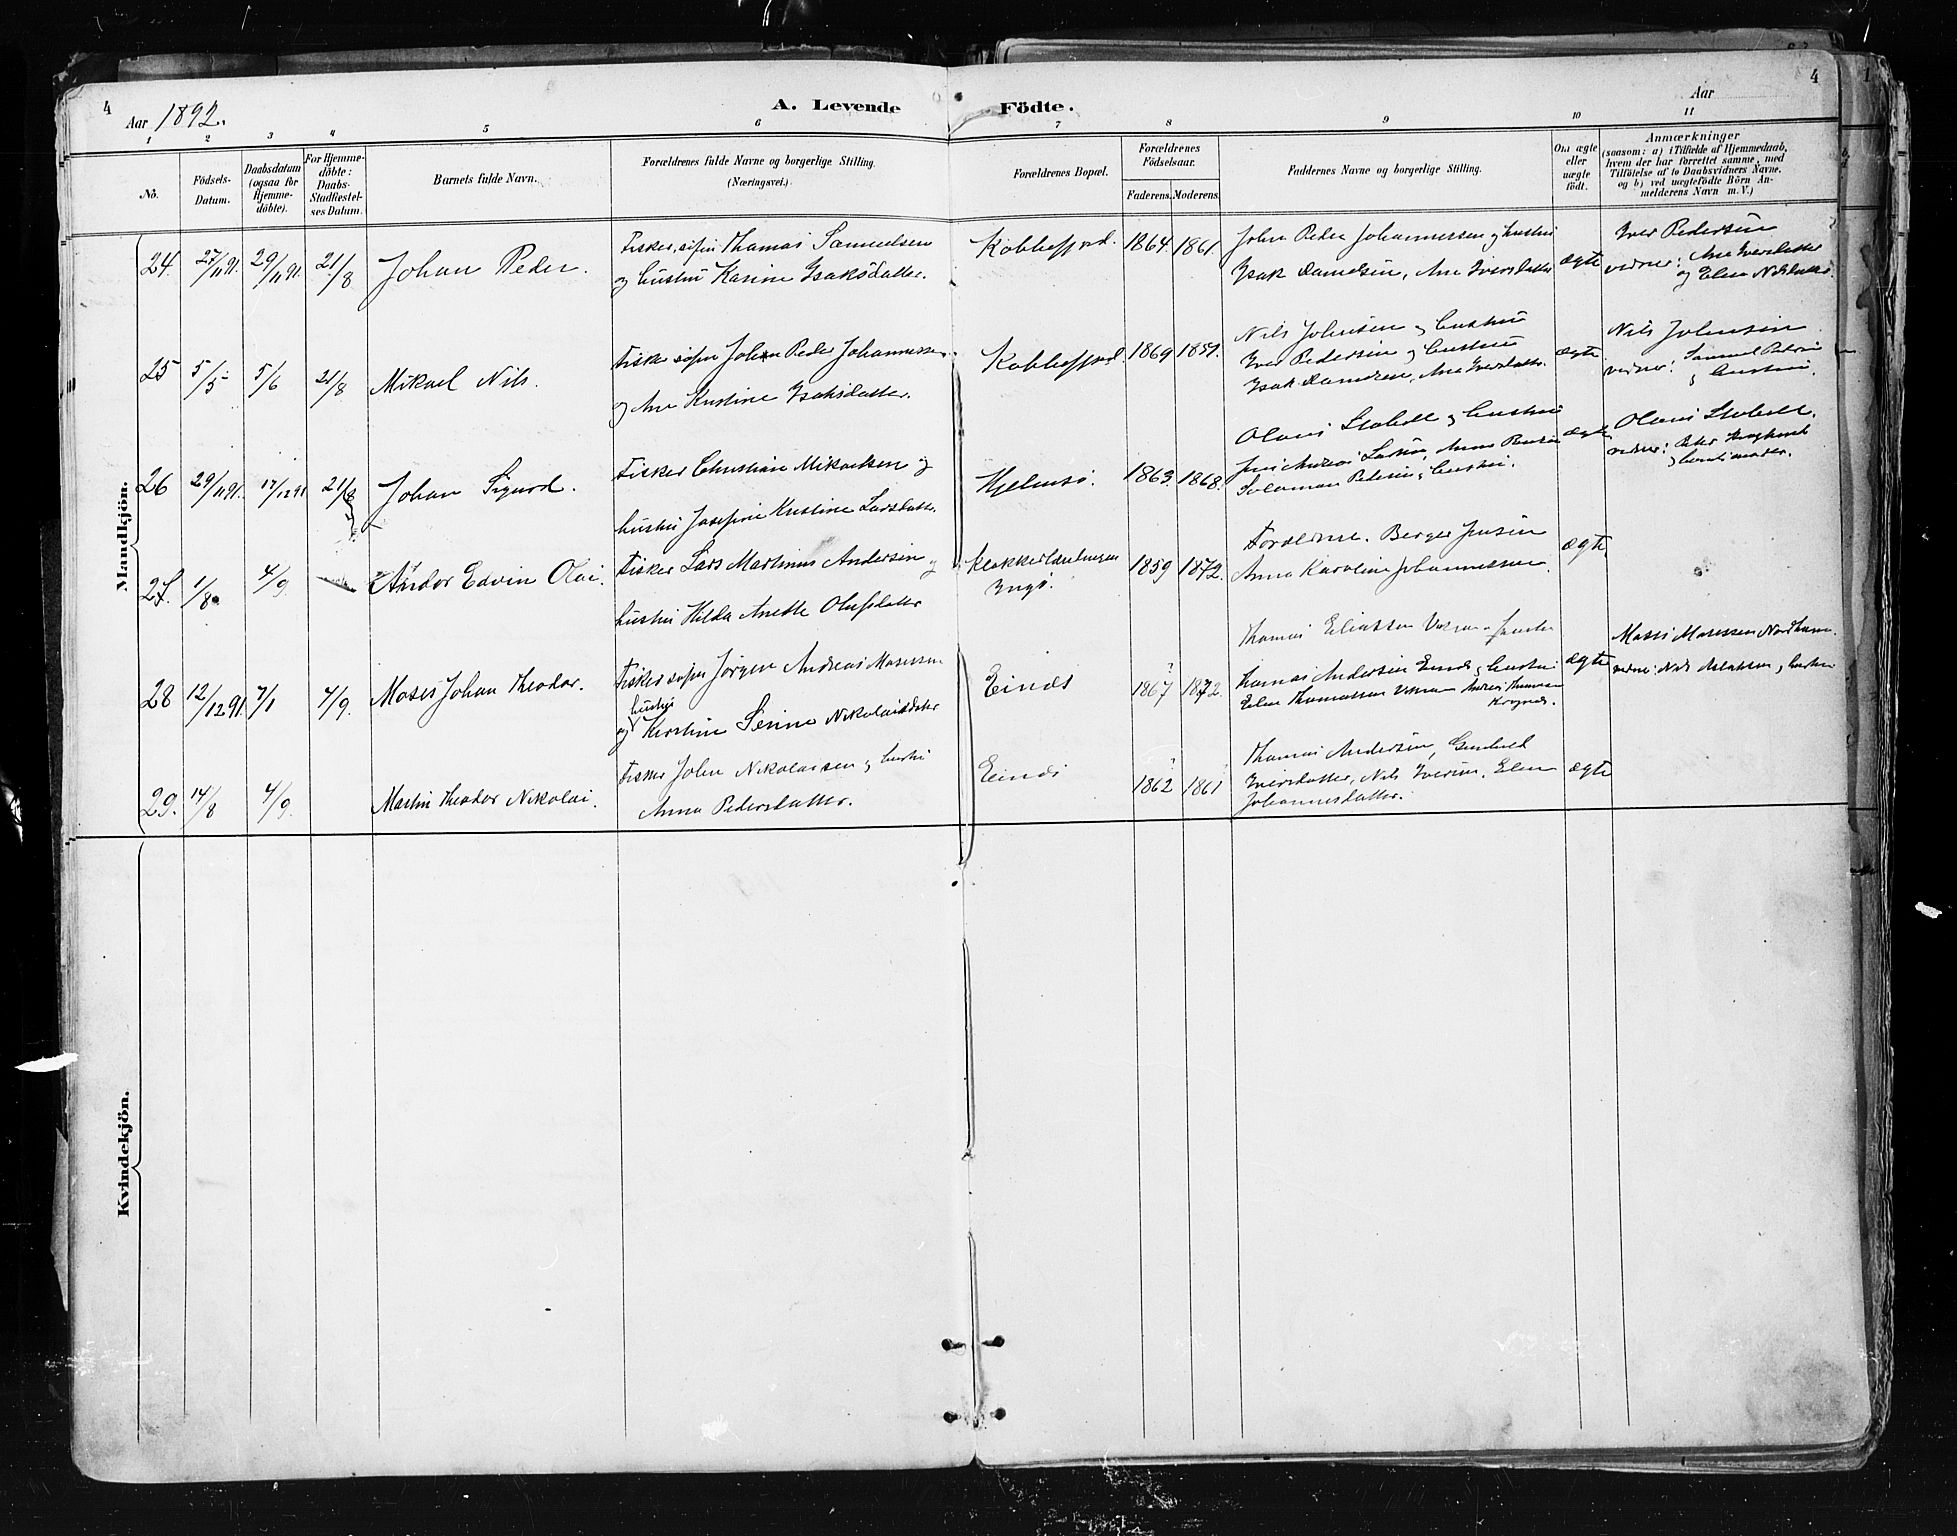 4
Aar 1892.
A. Levende Födte.
Aar
4
1 2 3 4 5 6 7 8 9 10 11
No.
Födsels-Datum.
Daabsdatum (ogsaa for Hjemme-döbte).
For Hjemme-döbte: Daabs-Stadfæstel-ses Datum.
Barnets fulde Navn.
Forældrenes fulde Navne og borgerlige Stilling.
(Næringsvei.)
Forældrenes Bopæl.
Forældrenes Födselsaar.
Faderens. Moderens.
Faddernes Navne og borgerlige Stilling.
Om ægte eller uægte födt.
Anmærkninger
(saasom: a) i Tilfælde af Hjemmedaab,
hvem der har forrettet samme, med
Tilföielse af to Daabsvidners Navne,
og b) ved uægtefödte Börn An-
melderens Navn m. V.)
Mandkjön.
24. 27/11 91. 29/11 91. 21/8 Johan Peder.
Fisker, søfin Thomas Samuelsen
og hustru Karine Isaksdatter.
Kobbefjord. 1864. 1861.
John Peder Johannessen og hustru
Isak Danielsen, Ane Iversdatter
ægte
Iver Pedersen
vidner: Ane Iversdatter
og Elen Nilsdatter.
25 5/5 5/6 21/8 Mikael Nils.
Fisker søfin Johan Peder Johannessen
og Ane Kristine Isaksdatter.
Kobbefjord. 1869 1851.
Nils Johnsen og hustru
Iver Pedersen og hustru
Isak Danielsen, Ane Iversdatter.
ægte
Nils Johnsen
vidner: Samuel
og hustru.
26 29/11 91. 17/12 91 21/8 Johan Sigurd.
Fisker Christian Mikaelsen og
hustru Josefine Kristine Larsdatter.
Hjelmsø. 1863. 1868.
Olaus og hustru
Jens Andreas Larsen, Anna
Solomon Pedersen og hustru.
ægte
Olaus
vidner: Peter
27. 1/8. 4/9 Andor Edvin Olai.
Fisker Lars Martinus Andersen og
hustru Hilda Anette Olufsdatter
Ingø. 1859 1872.
Forældrene. Berger Jensen
Anna Karoline Johannessen.
ægte
28 12/12 91. 7/1 4/9. Moses Johan Theodor.
Fisker søfin Jørgen Andreas Mosessen
og hustru Kirstine Serine Nikolaisdatter
Einæs 1867 1872.
Thomas Eliassen
Thomas Andersen Einæs og hustru
Elen Thomassen Andreas Thomassen
ægte
Moses Mosessen
vidner: Nils og hustru
29. 14/8 4/9. Martin Theodor Nikolai.
Fisker John Nikolaisen og hustru
Anna Pedersdatter.
Einæs 1862 1861
Thomas Andersen,
Iversdatter, Nils Iversen, Elen
Johannesdatter.
ægte
Kvindekjön.